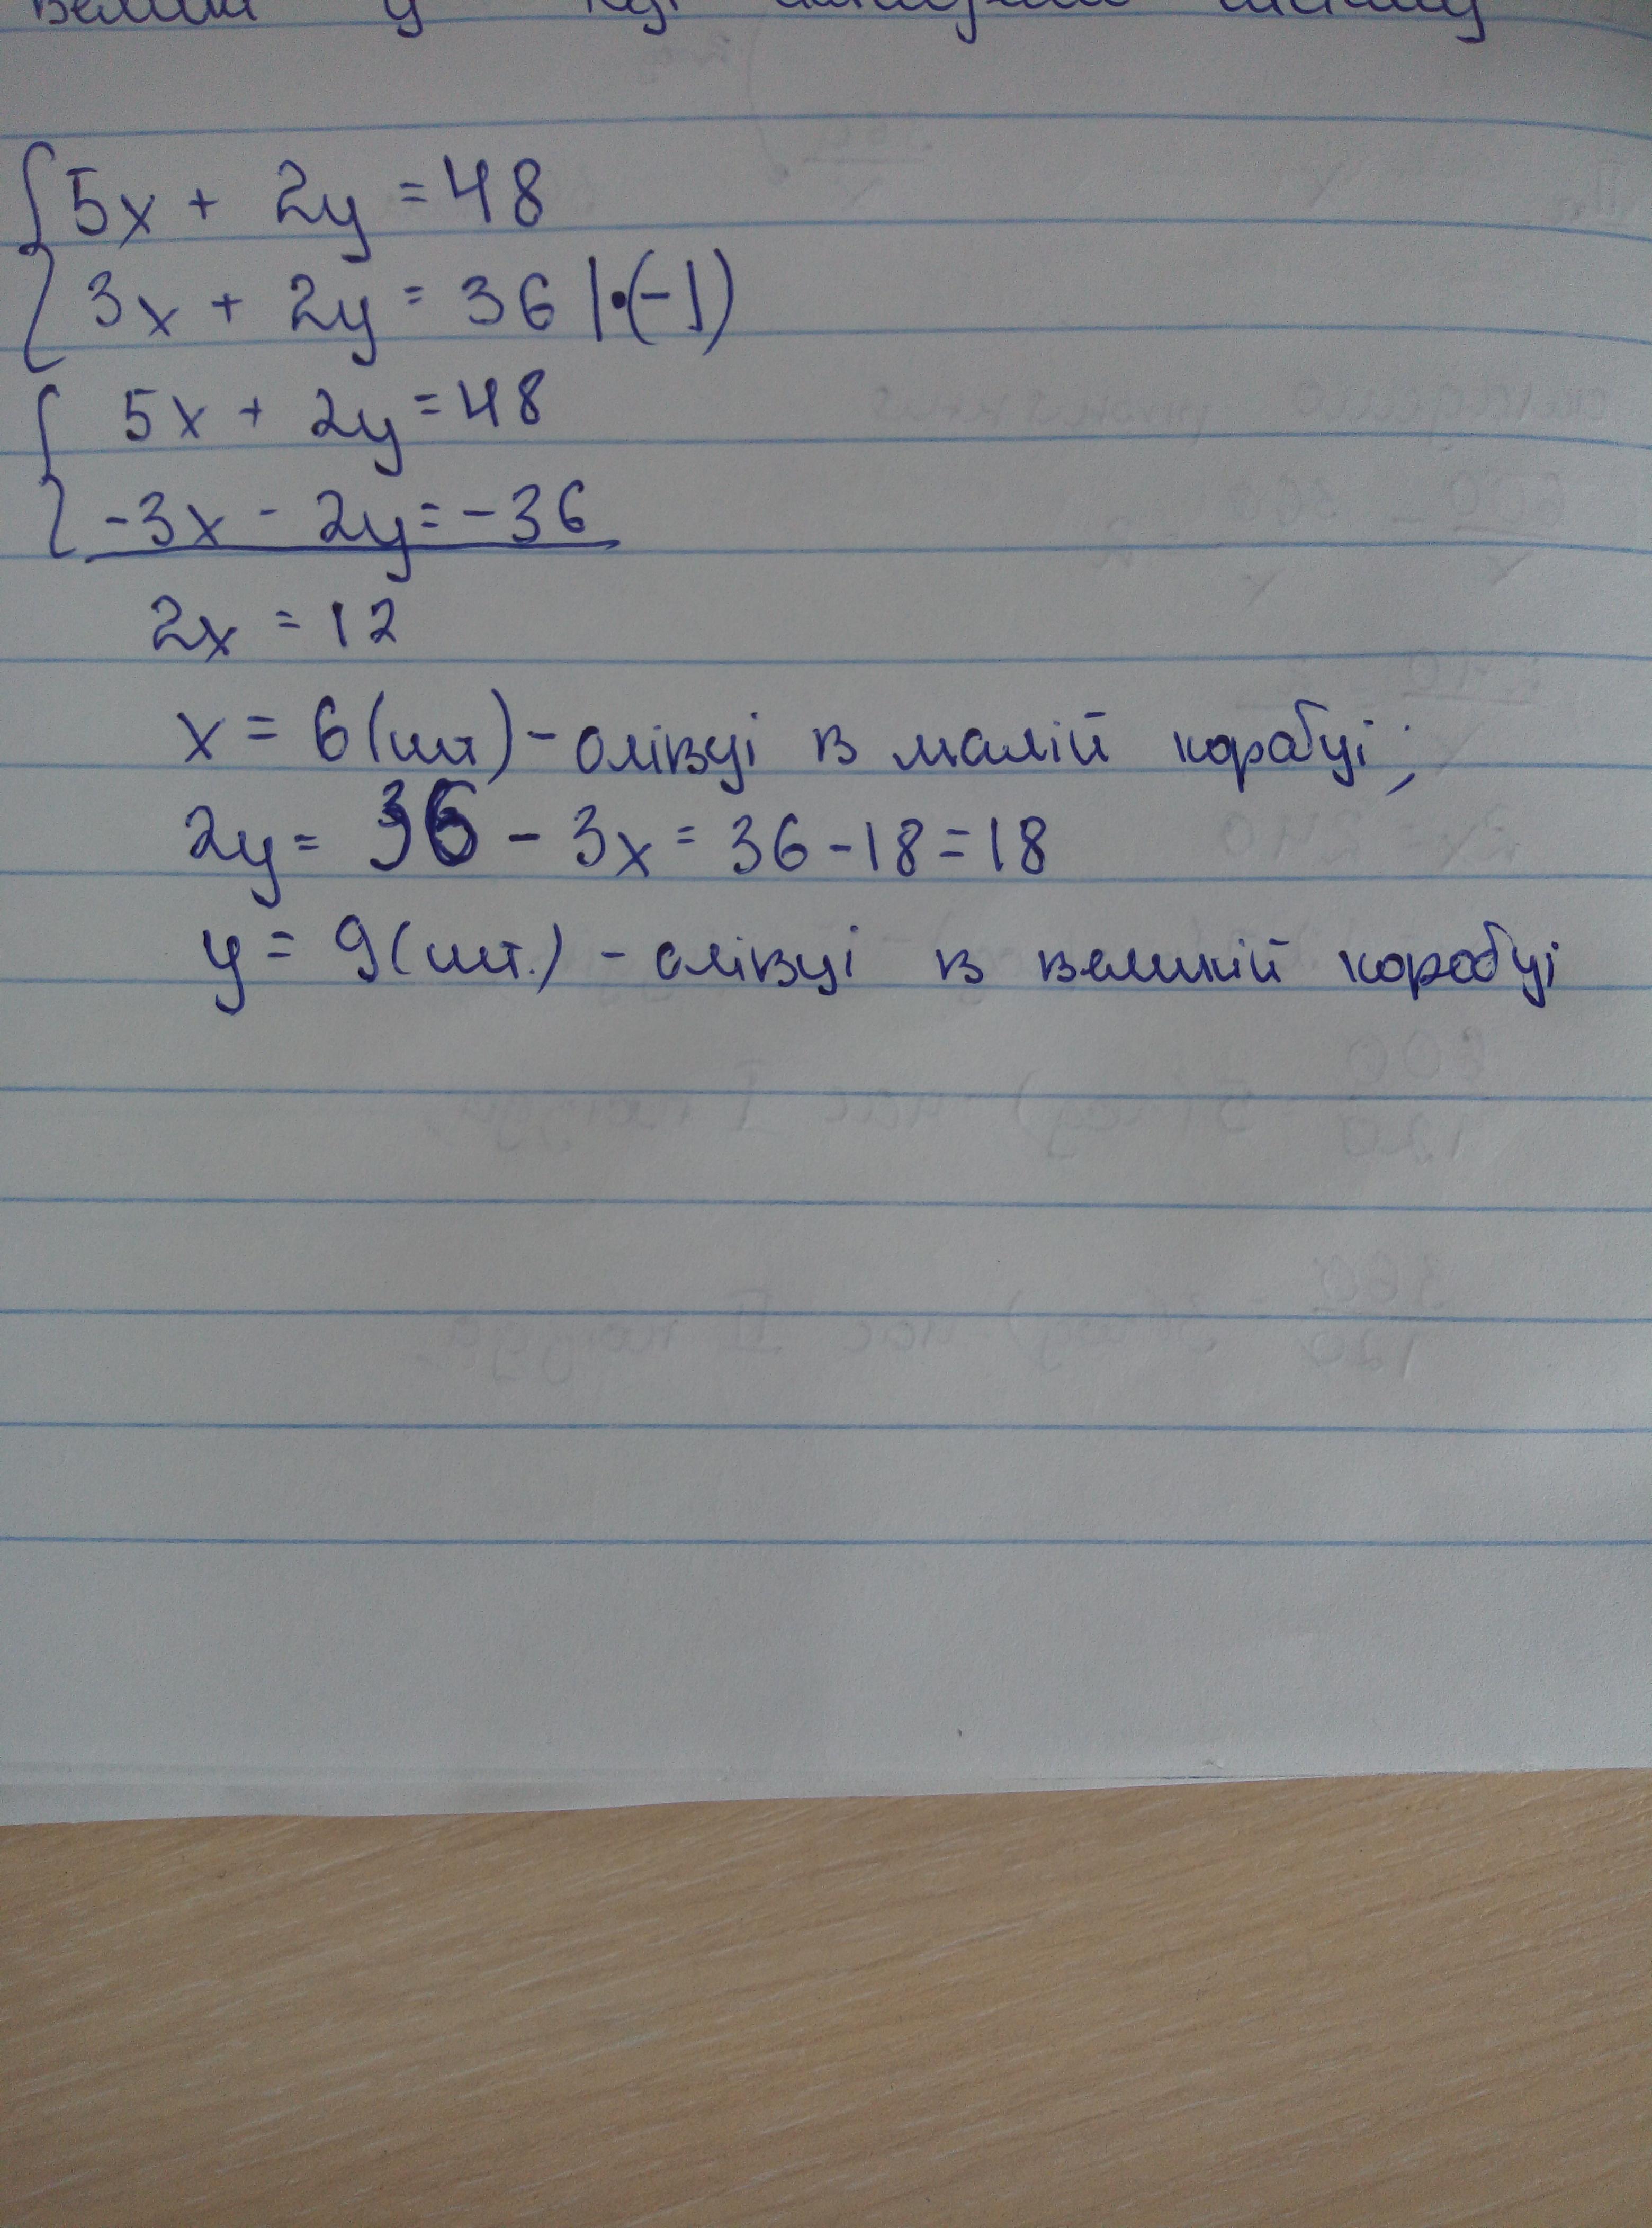 { 5x + 2y = 48
3x + 2y = 36 |·(-1)
{ 5x + 2y = 48
-3x - 2y = -36
2x = 12
x = 6 (шт) - олівці в малій коробці;
2y = 36 - 3x = 36 - 18 = 18
y = 9 (шт.) - олівці в великій коробці